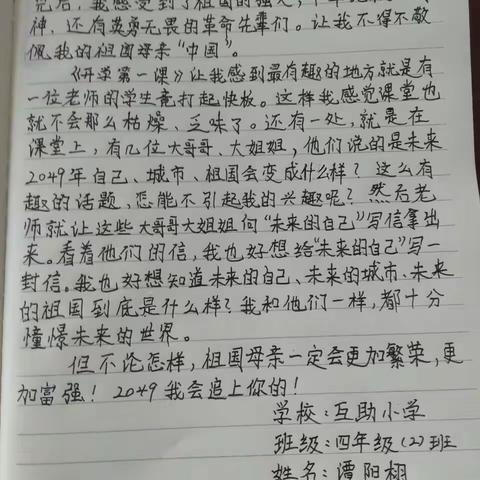 完后，我感受到了祖国的强大，
神，还有英勇无畏的革命先辈们。让我不得不敬
佩我的祖国母亲“中国”。
《开学第一课》让我感到最有趣的地方就是有
一位老师的学生竟打起快板。这样我感觉课堂也
就不会那么枯燥、乏味了。还有一处，就是在
课堂上，有几位大哥哥、大姐姐，他们说的是未来
2049年自己、城市、祖国会变成什么样？这么有
趣的话题，怎能不引起我的兴趣呢？然后老
师就让这些大哥哥大姐姐向“未来的自己”写信拿出
来。看着他们的信，我也好想给“未来的自己”写一
封信。我也好想知道未来的自己、未来的城市、未来
的祖国到底是什么样？我和他们一样，都十分
憧憬未来的世界。
但不论怎样，祖国母亲一定会更加繁荣，更
加富强！2049我会追上你的！
学校：互助小学
班级：四年级（2）班
姓名：谭阳栩